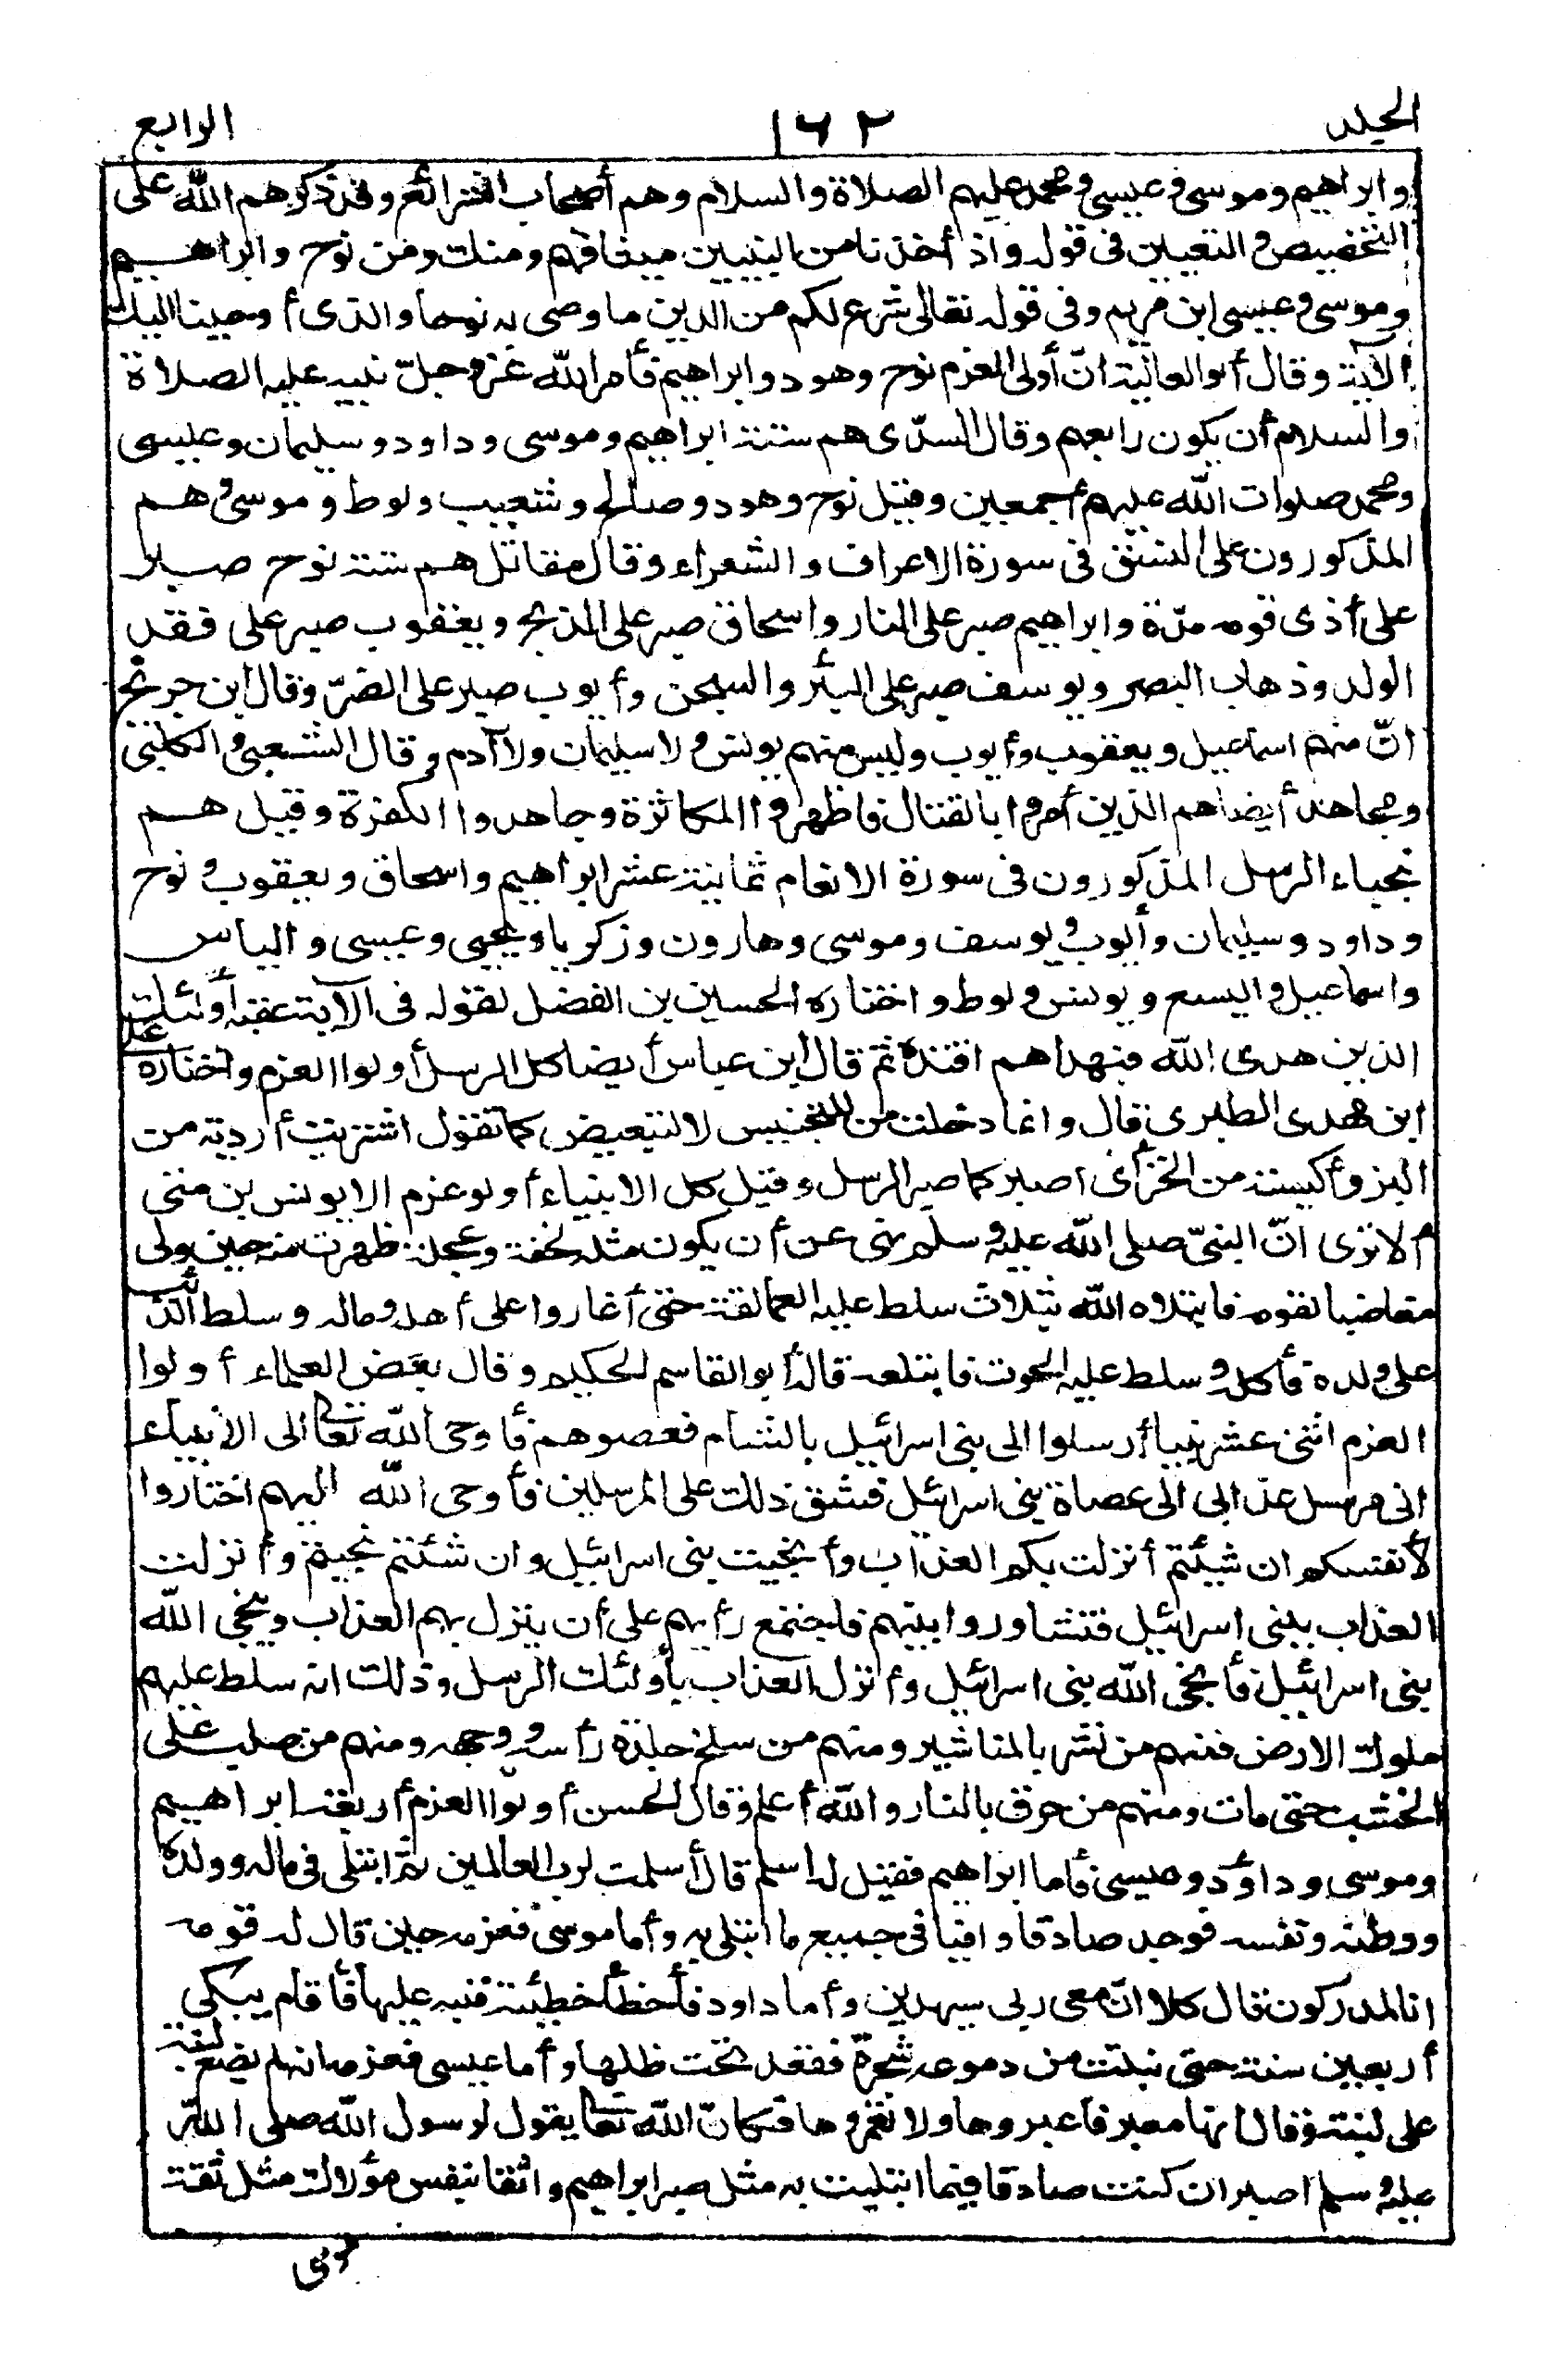 الجلد ١٦٢ الرابع
وابراهيم وموسى وعيسى ومحمد عليهم الصلاة والسلام وهم أصحاب الشرائع وقد ذكرهم الله على
التخصيص والتعيين فى قوله واذ أخذنا من النبيين ميثاقهم ومنك ومن نوح وابراهيم
وموسى وعيسى ابن مريم وفى قوله تعالى شرع لكم من الدين ما وصى به نوحا والذى أوحينا اليك
الآية وقال أبو العالية انّ أولى العزم نوح وهود وابراهيم فأمر الله عز وجلّ نبيه عليه الصلاة
والسلام أن يكون رابعهم وقال السدّى هم ستة ابراهيم وموسى وداود وسليمان وعيسى
ومحمد صلوات الله عليهم أجمعين وقيل نوح وهود وصالح وشعيب ولوط وموسى وهم
المذكورون على النسق فى سورة الاعراف والشعراء وقال مقاتل هم ستة نوح صبر
على أذى قومه مدّة وابراهيم صبر على النار واسحاق صبر على الذبح ويعقوب صبر على فقد
الولد وذهاب البصر ويوسف صبر على البئر والسجن وأيوب صبر على الضرّ وقال ابن جريج
انّ منهم اسماعيل ويعقوب وأيوب وليس منهم يونس ولا سليمان ولا آدم وقال الشعبى والكلبى
ومجاهد أيضا هم الذين أمروا بالقتال فاظهروا المكاثرة وجاهدوا الكفرة وقيل هم
نجباء الرسل المذكورون فى سورة الانعام ثمانية عشر ابراهيم واسحاق ويعقوب ونوح
وداود وسليمان وأيوب ويوسف وموسى وهارون وزكريا ويحيى وعيسى والياس
واسماعيل واليسع ويونس ولوط واختاره الحسين بن الفضل لقوله فى الآية عقبه أولئك
الذين هدى الله فبهداهم اقتده ثم قال ابن عباس أيضا كل الرسل أولوا العزم واختاره على
ابن مهدى الطبرى قال وانما دخلت من للتجنيس لا للتبعيض كما تقول اشتريت أردية من
البز وأكيسة من الخز أى اصبر كما صبر الرسل وقيل كل الانبياء أولو عزم الا يونس بن متى
ألا ترى انّ النبىّ صلى الله عليه وسلم نهى عن أن يكون مثله لخفة وعجلة ظهرت منه حين ولى
مغاضبا لقومه فابتلاه الله بثلاث سلط عليه العمالقة حتى أغاروا على أهله وماله وسلط الذئب
على ولده فأكله وسلط عليه الحوت فابتلعه قاله أبو القاسم الحكيم وقال بعض العلماء أولوا
العزم اثنى عشر نبيا أرسلوا الى بنى اسرائيل بالشام فعصوهم فأوحى الله تعالى الى الأنبياء
انى مرسل عذابى الى عصاة بنى اسرائيل فشق ذلك على المرسلين فأوحى الله اليهم اختاروا
لأنفسكم ان شئتم أنزلت بكم العذاب وأنجيت بنى اسرائيل وان شئتم نجيتم وأنزلت
العذاب ببنى اسرائيل فتشاوروا بينهم فاجتمع رأيهم على أن ينزل بهم العذاب وينجى الله
بنى اسرائيل فأنجى الله بنى اسرائيل وأنزل العذاب بأولئك الرسل وذلك انه سلط عليهم
ملوك الارض فمنهم من نشر بالمناشير ومنهم من سلخ جلدة رأسه ووجهه ومنهم من صلب على
الخشب حتى مات ومنهم من حرق بالنار والله أعلم وقال الحسن أولوا العزم أربعة ابراهيم
وموسى وداود وعيسى فأما ابراهيم فقيل له اسلم قال أسلمت لرب العالمين ثم ابتلى فى ماله وولده
ووطنه ونفسه فوجد صادقا وافيا فى جميع ما ابتلى به وأما موسى فعزمه حين قال له قومه
انا لمدركون قال كلا انّ معى ربى سيهدين وأما داود فأخطأ خطيئة فنبه عليها فأقام يبكى
أربعين سنة حتى نبتت من دموعه شجرة فقعد تحت ظلها وأما عيسى فعزمه انه لم يضع لبنة
على لبنة وقال انها معبر فاعبروها ولا تعمروها فكانّ الله تعالى يقول لرسول الله صلى الله
عليه وسلم اصبر ان كنت صادقا فيما ابتليت به مثل صبر ابراهيم واثقا بنفس مولاك مثل ثقة